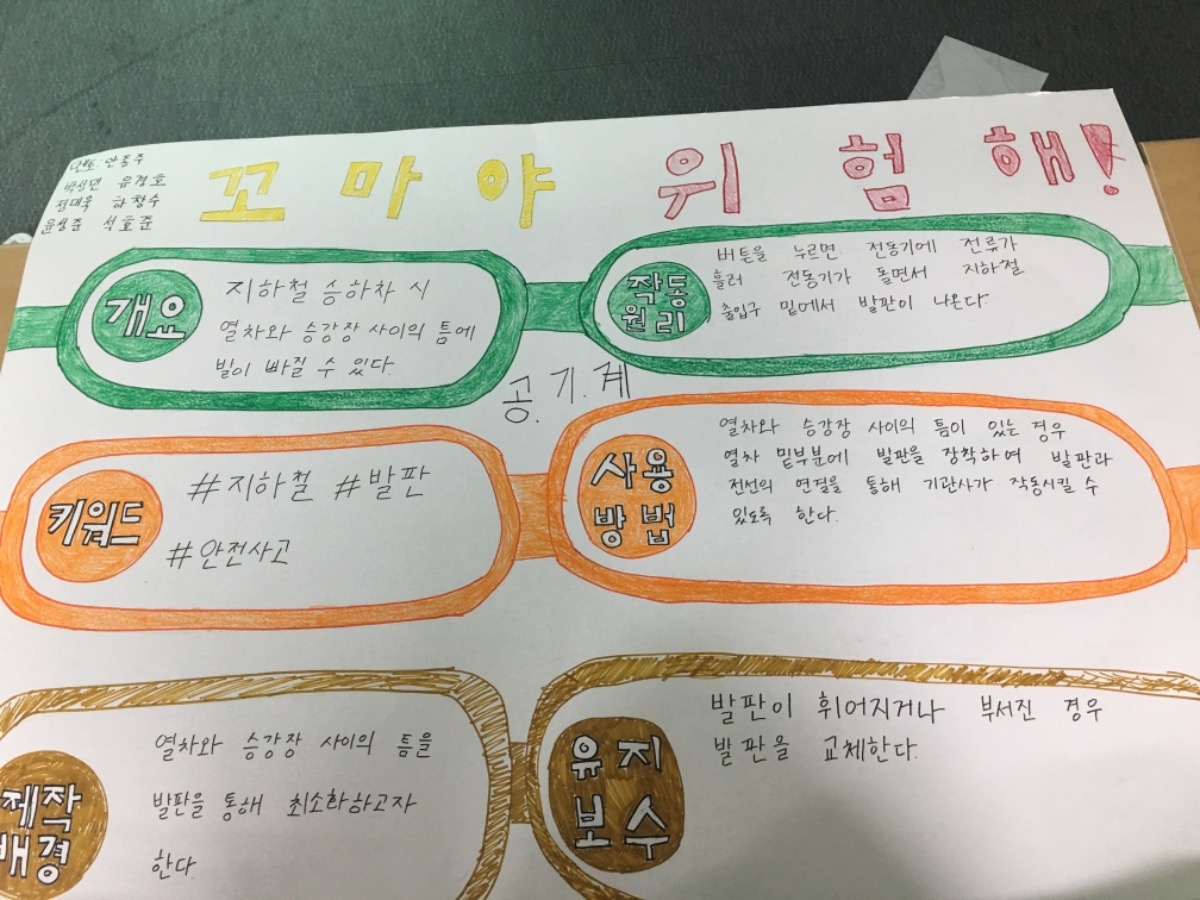 멘토: 안흥주
박성면 유경호
정대욱 하창수
윤성준 석호준
꼬마야 위험해!
개요
지하철 승하차 시
열차와 승강장 사이의 틈에
발이 빠질 수 있다.
작동
원리
버튼을 누르면 전동기에 전류가
흘러 전동기가 돌면서 지하철
출입구 밑에서 발판이 나온다.
공.기.계
키워드
#지하철 #발판
#안전사고
사용
방법
열차와 승강장 사이의 틈이 있는 경우
열차 밑부분에 발판을 장착하여 발판과
전선의 연결을 통해 기관사가 작동시킬 수
있도록 한다.
제작
배경
열차와 승강장 사이의 틈을
발판을 통해 최소화하고자
한다.
유지
보수
발판이 휘어지거나 부서진 경우
발판을 교체한다.